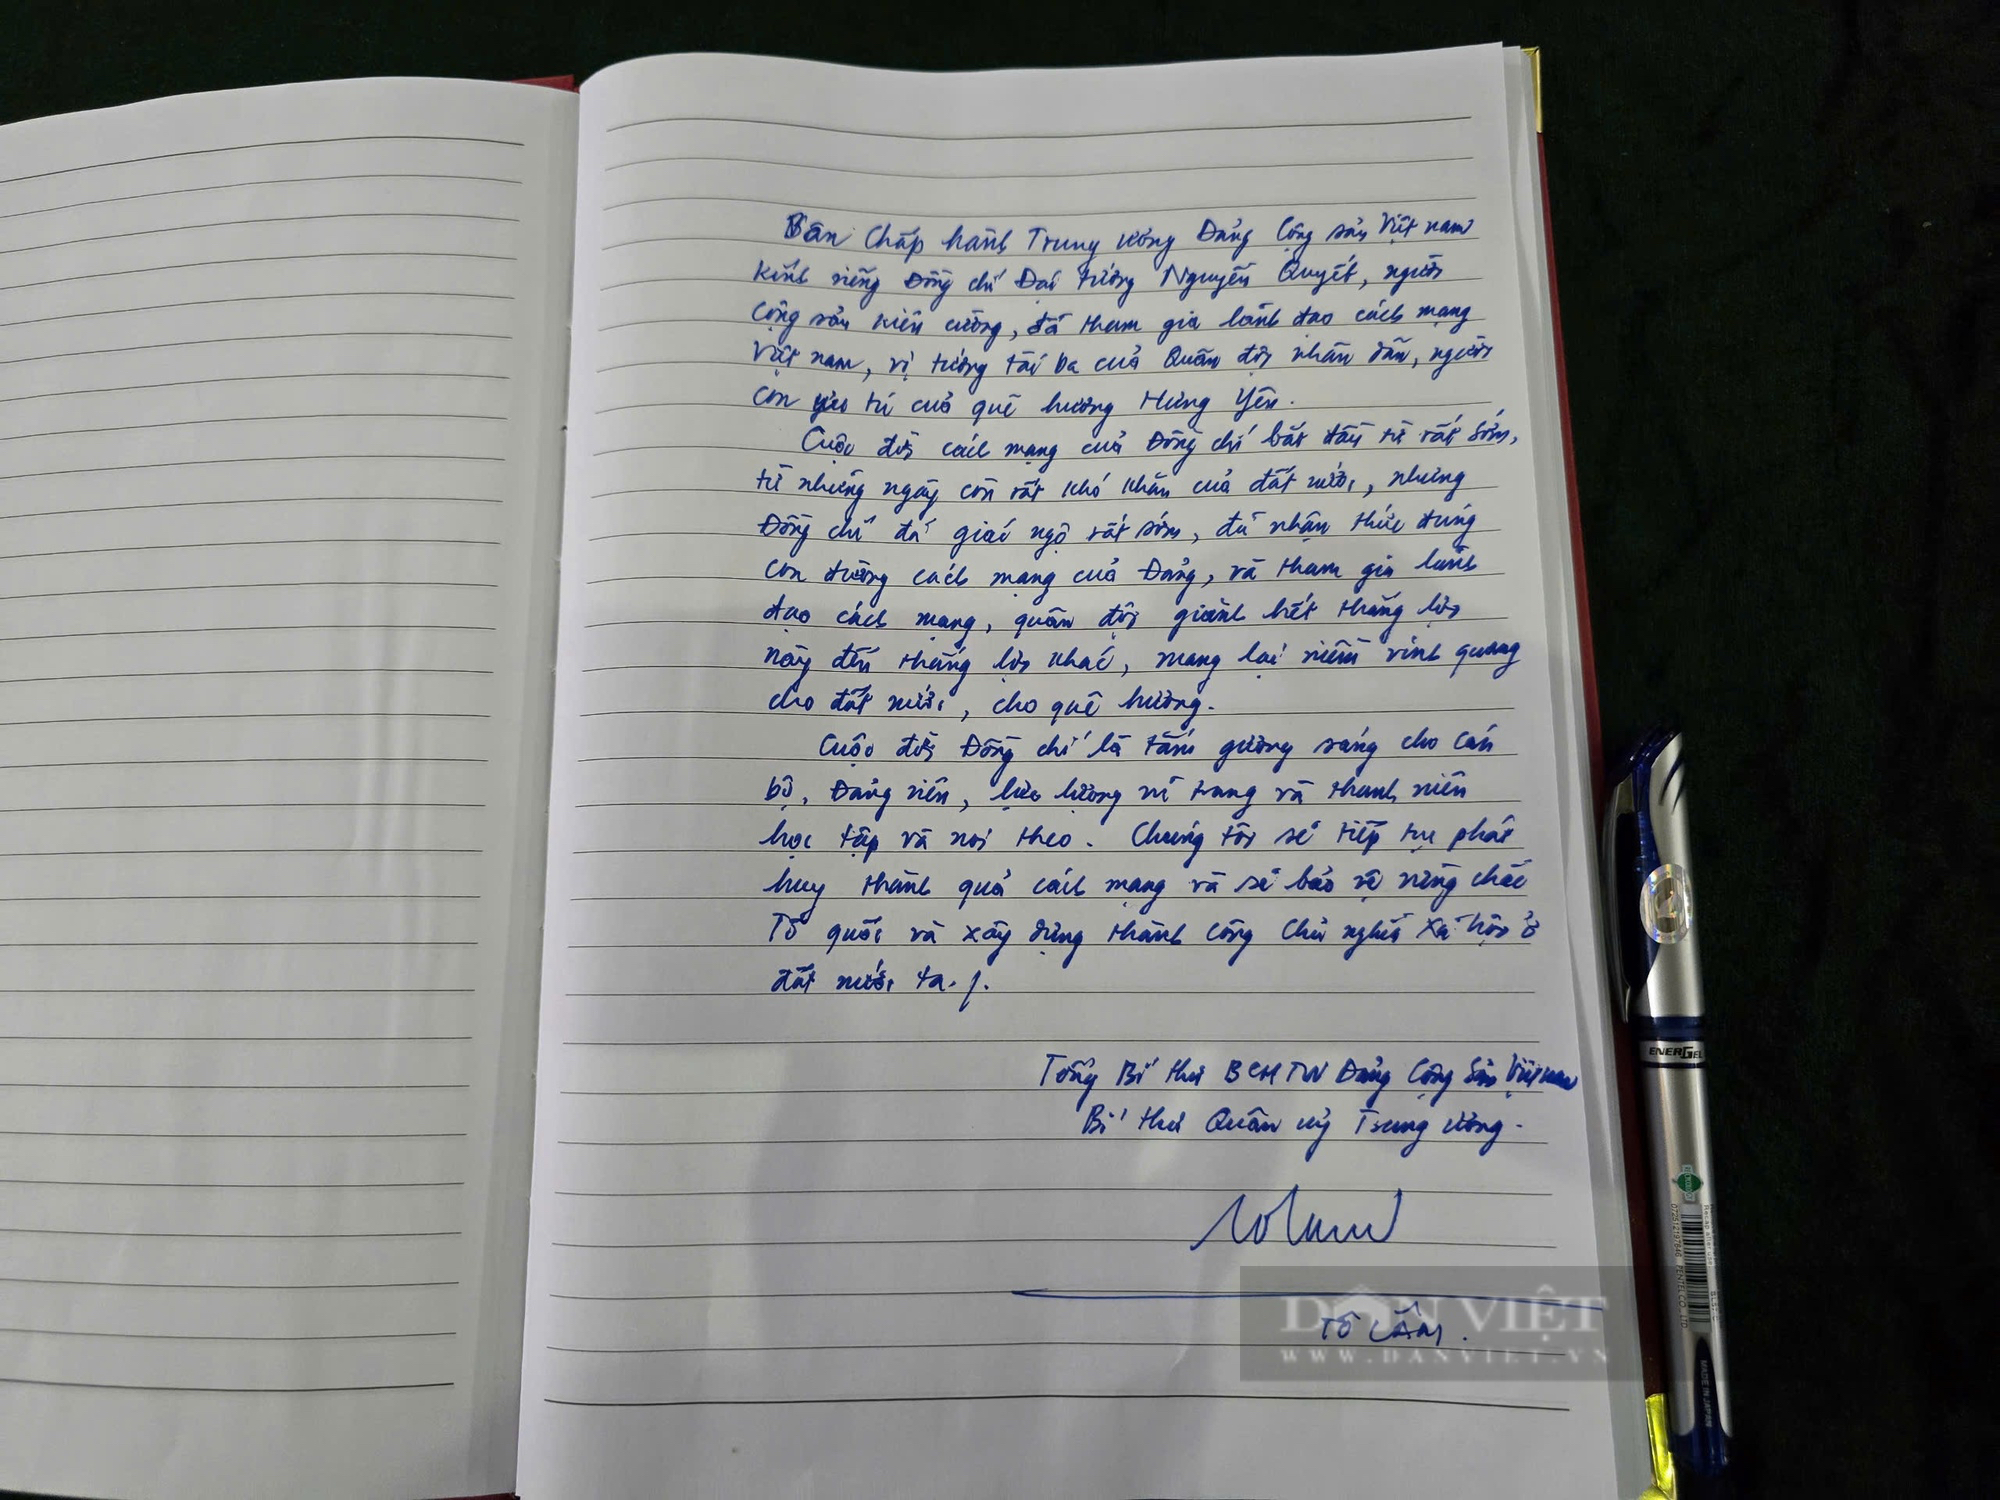 Ban Chấp hành Trung ương Đảng Cộng sản Việt nam
kính viếng Đồng chí Đại tướng Nguyễn Quyết, người
Cộng sản kiên cường, đã tham gia lãnh đạo cách mạng
Việt nam, vị tướng tài ba của Quân đội nhân dân, người
con ưu tú của quê hương Hưng Yên.
Cuộc đời cách mạng của Đồng chí bắt đầu từ rất sớm,
từ những ngày còn rất khó khăn của đất nước, nhưng
Đồng chí đã giác ngộ rất sớm, đã nhận thức đúng
con đường cách mạng của Đảng, và tham gia lãnh
đạo cách mạng, quân đội giành hết thắng lợi
này đến thắng lợi khác, mang lại niềm vinh quang
cho đất nước, cho quê hương.
Cuộc đời Đồng chí là tấm gương sáng cho cán
bộ, Đảng viên, lực lượng vũ trang và thanh niên
học tập và noi theo. Chúng tôi sẽ tiếp tục phát
huy thành quả cách mạng và sẽ bảo vệ vững chắc
Tổ quốc và xây dựng thành công Chủ nghĩa Xã hội ở
đất nước ta./.
Tổng Bí thư BCHTW Đảng Cộng Sản Việt nam
Bí thư Quân uỷ Trung ương.
DÂN VIỆT
Tô Lâm.
WWW.DANVIET.VN
ENERGEL
RECYCLOGY
Recap after use
0725121978 46 PENTEL CO., LTD.
MADE IN JAPAN